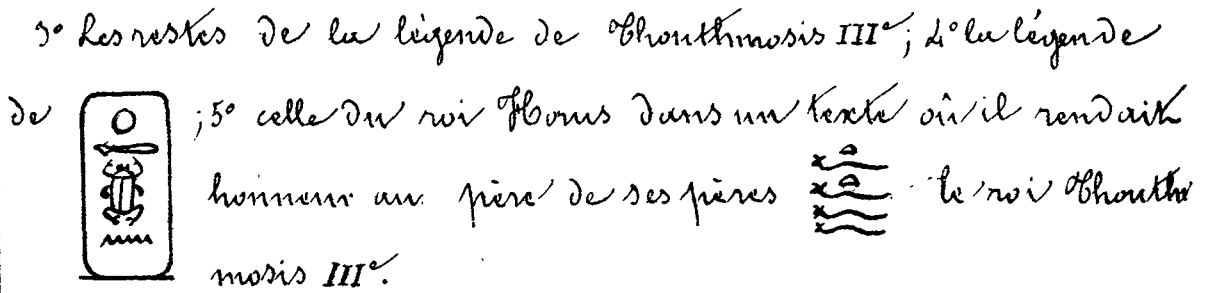 3° Les restes de la légende de Thouthmosis III<sup>e</sup>; 4° la légende
de ; 5° celle du roi Horus dans un texte où il rendait
honneur au père de ses pères le roi Thouth
mosis III<sup>e</sup>.